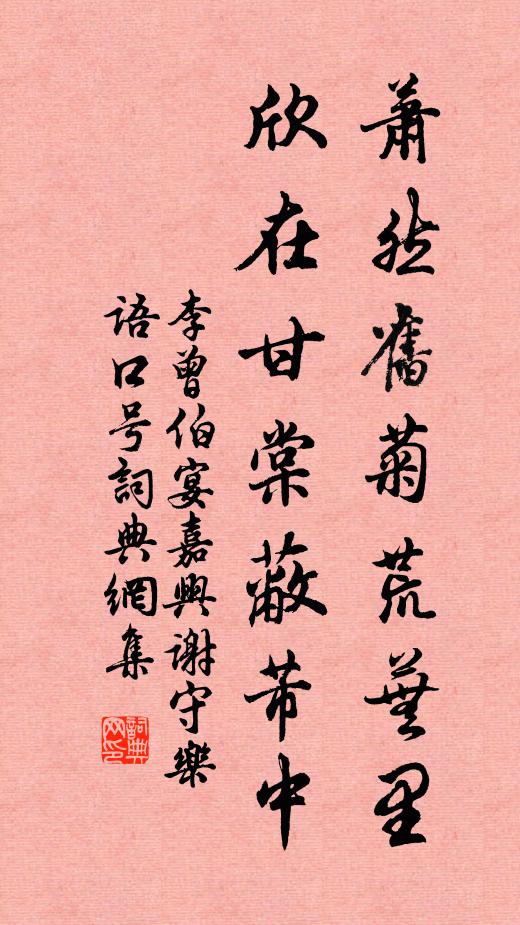 蕭然舊菊荒蕪里
欣在甘棠蔽芾中
李曾伯宴嘉興谢守樂
语口号詞典網集
詞典网印